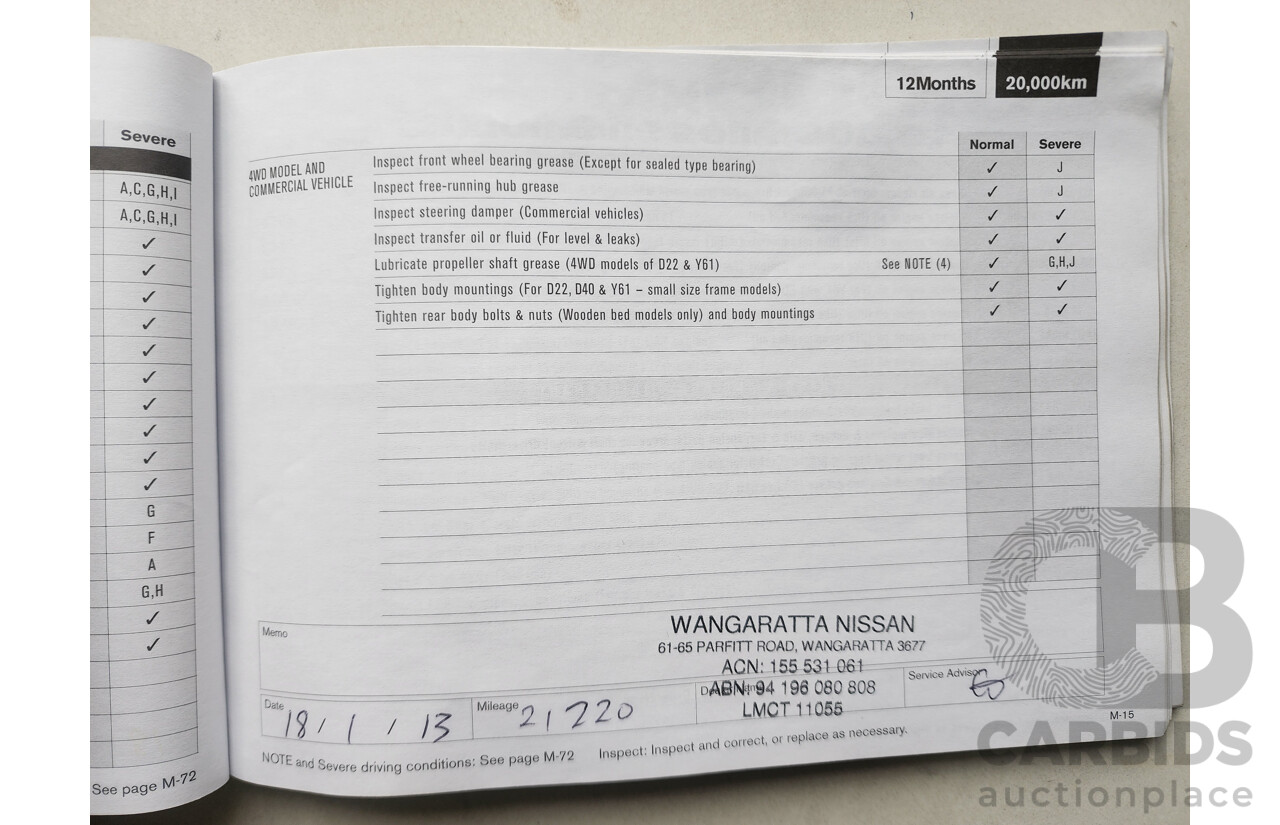 Severe
A,C,G,H,I
A,C,G,H,I
✓
✓
✓
✓
✓
✓
✓
✓
✓
✓
G
F
A
G,H
✓
✓
See page M-72
12Months 20,000km
Normal Severe
4WD MODEL AND
COMMERCIAL VEHICLE
Inspect front wheel bearing grease (Except for sealed type bearing) ✓ J
Inspect free-running hub grease ✓ J
Inspect steering damper (Commercial vehicles) ✓ ✓
Inspect transfer oil or fluid (For level & leaks) ✓ ✓
Lubricate propeller shaft grease (4WD models of D22 & Y61) See NOTE (4) ✓ G,H,J
Tighten body mountings (For D22, D40 & Y61 – small size frame models) ✓ ✓
Tighten rear body bolts & nuts (Wooden bed models only) and body mountings ✓ ✓
Memo
WANGARATTA NISSAN
61-65 PARFITT ROAD, WANGARATTA 3677
ACN: 155 531 061
ABN: 94 196 080 808
LMCT 11055
Date 18 / 1 / 13 Mileage 21220
Service Advisor
NOTE and Severe driving conditions: See page M-72 Inspect: Inspect and correct, or replace as necessary.
M-15
CB
CARBIDS
auctionplace